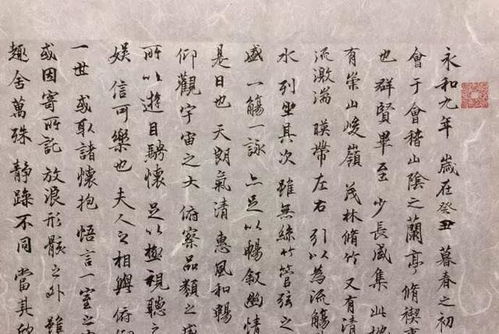 永和九年 歲在癸丑 暮春之初
會于會稽山陰之蘭亭 脩稧事
也 群賢畢至 少長咸集 此地
有崇山峻嶺 茂林脩竹 又有清
流激湍 暎帶左右 引以為流觴
水 列坐其次 雖無絲竹管弦之
盛 一觴一詠 亦足以暢敘幽情
是日也 天朗氣清 惠風和暢
仰觀宇宙之大 俯察品類之盛
所以遊目騁懷 足以極視聽之
娛 信可樂也 夫人之相與 俯仰
一世 或取諸懷抱 悟言一室之
或因寄所託 放浪形骸之外 雖
趣舍萬殊 靜躁不同 當其欣